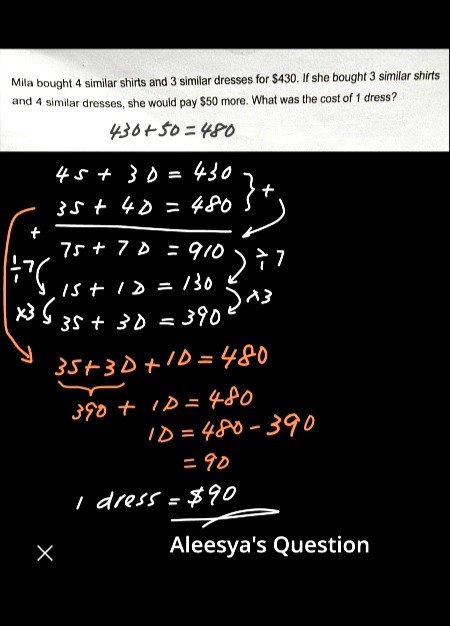 Mila bought 4 similar shirts and 3 similar dresses for $430. If she bought 3 similar shirts
and 4 similar dresses, she would pay $50 more. What was the cost of 1 dress?
430+50=480
4S + 3D = 430
3S + 4D = 480
+
+
7S + 7D = 910
÷7
÷7
1S + 1D = 130
×3
×3
3S + 3D = 390
3S+3D+1D=480
390 + 1D=480
1D=480-390
=90
1 dress = $90
Aleesya's Question